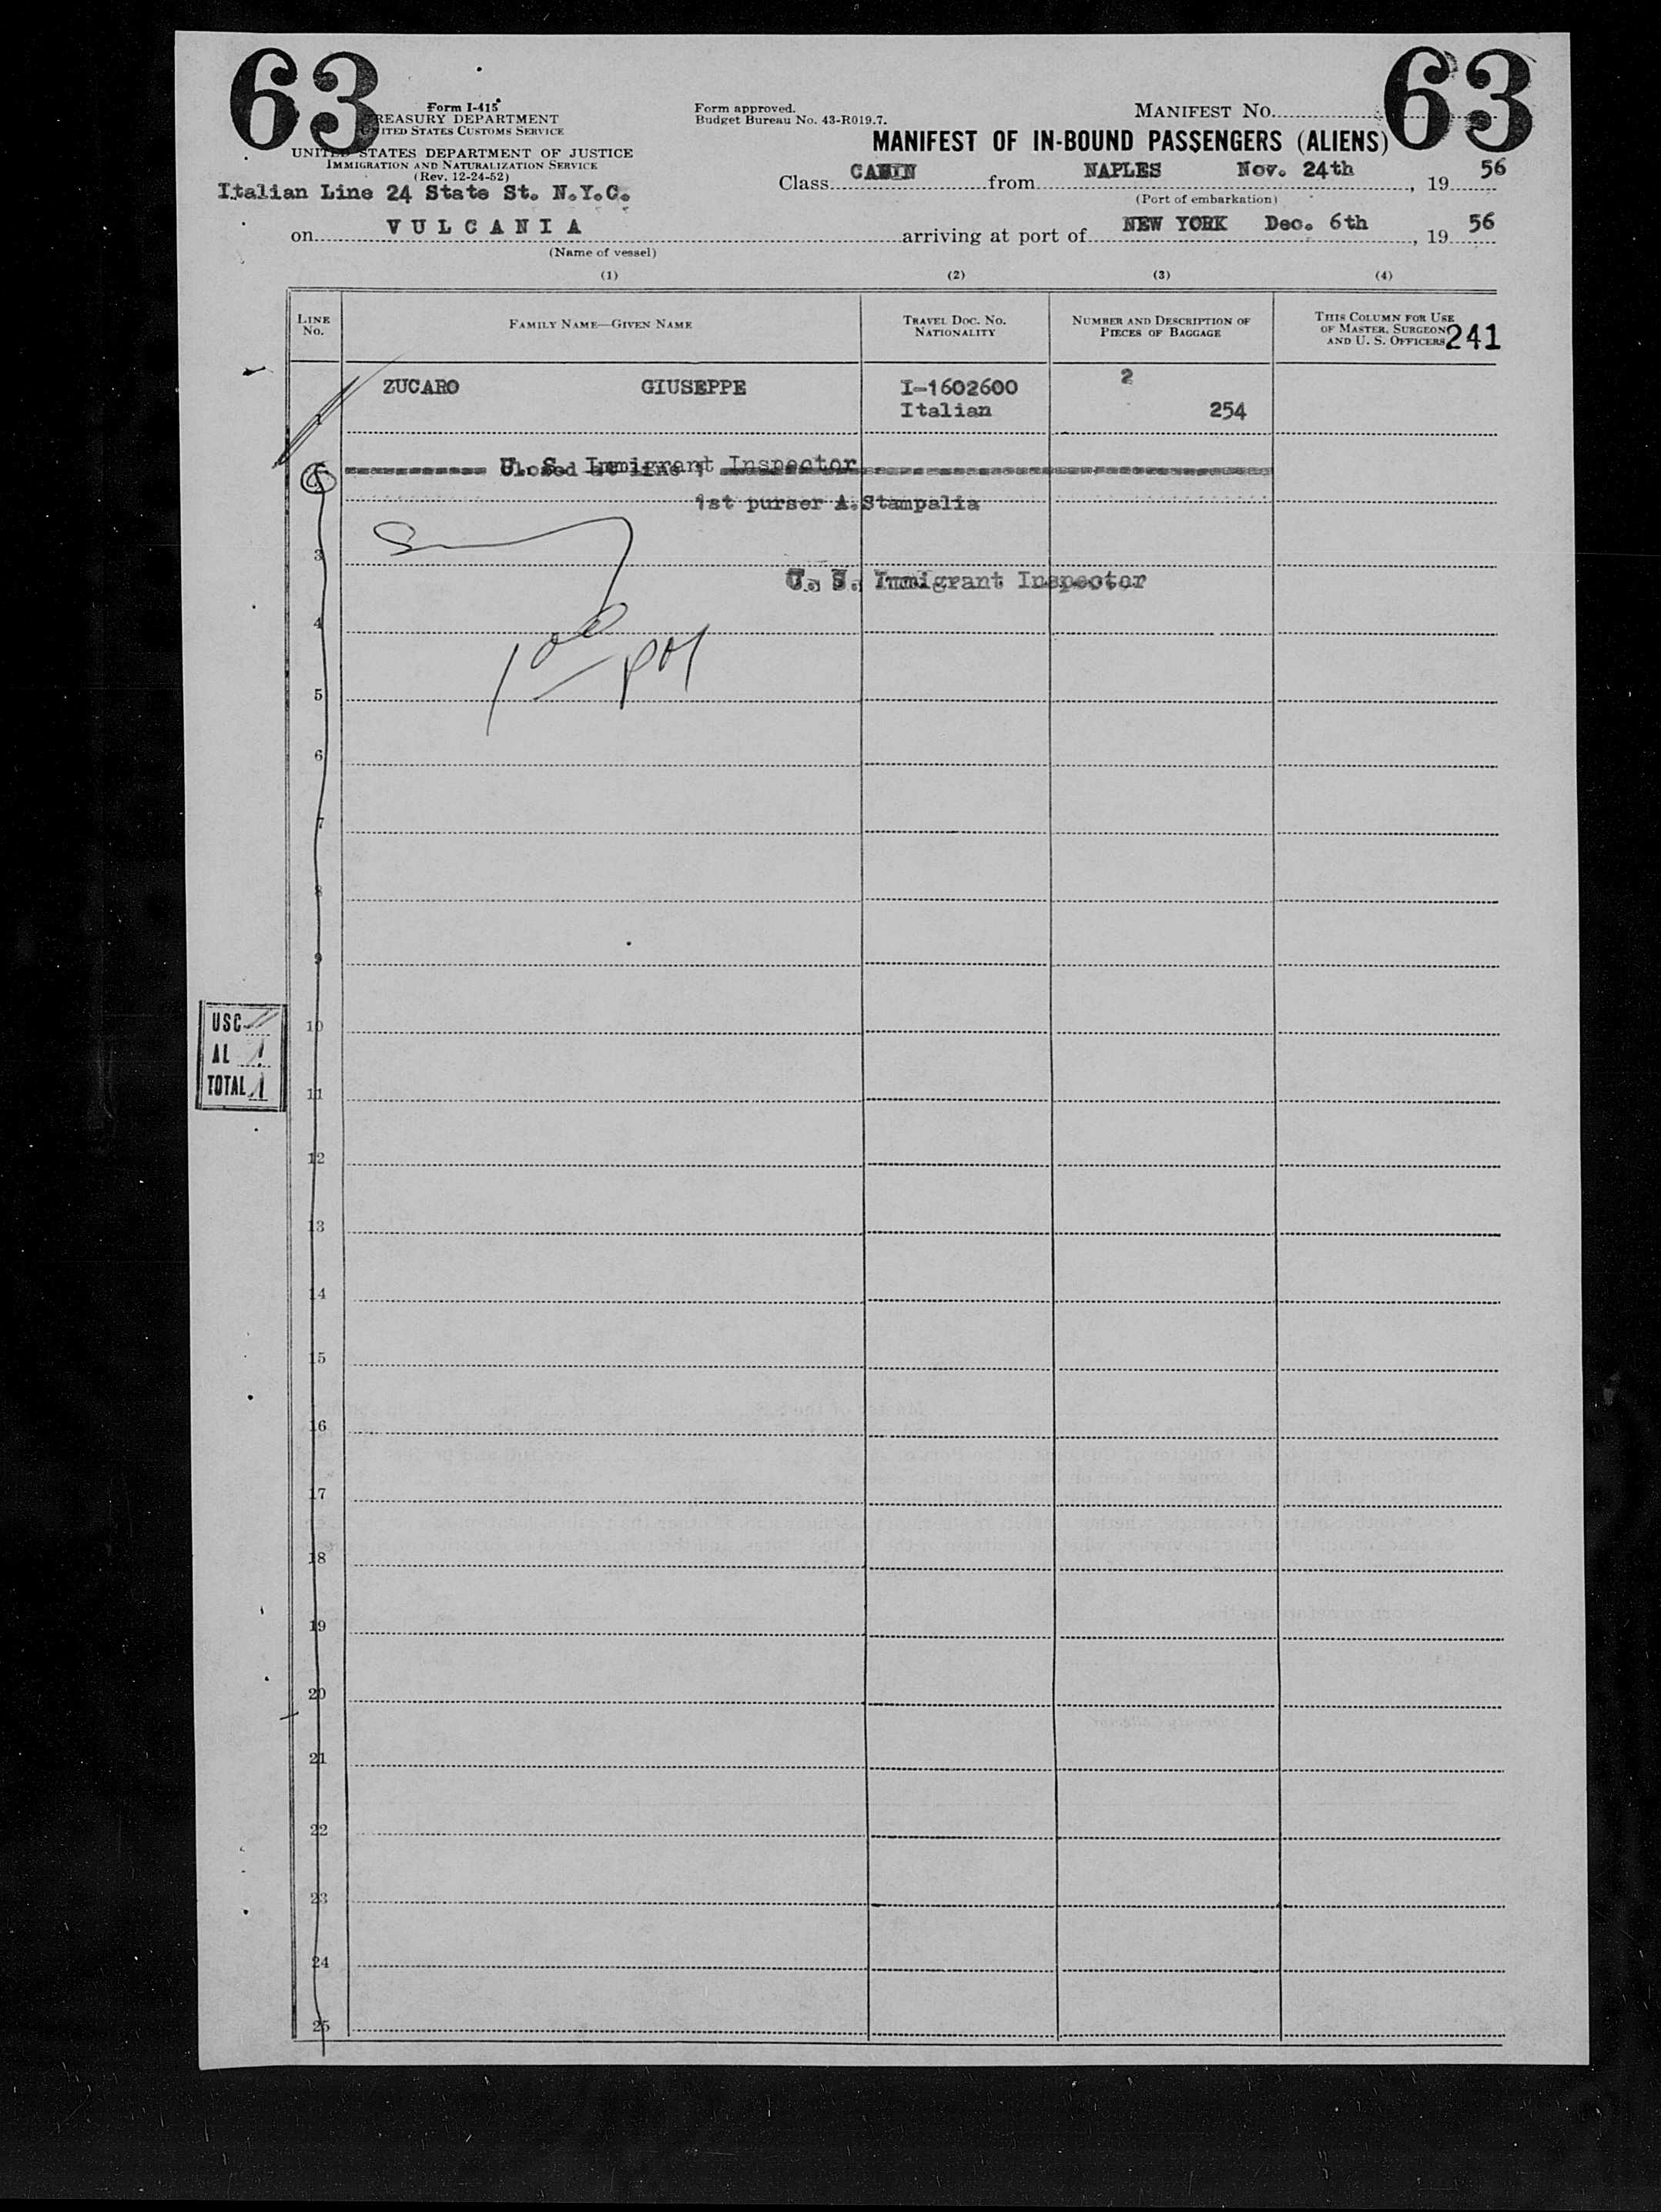 63
63
Form I-415
TREASURY DEPARTMENT
UNITED STATES CUSTOMS SERVICE
UNITED STATES DEPARTMENT OF JUSTICE
IMMIGRATION AND NATURALIZATION SERVICE
(Rev. 12-24-52)
Form approved.
Budget Bureau No. 43-R019.7.
MANIFEST No.
MANIFEST OF IN-BOUND PASSENGERS (ALIENS)
Italian Line 24 State St. N.Y.C.
Class CABIN from NAPLES Nov. 24th, 19 56
(Port of embarkation)
on VULCANIA arriving at port of NEW YORK Dec. 6th, 19 56
(Name of vessel)
(1) (2) (3) (4)
LINE No. FAMILY NAME—GIVEN NAME TRAVEL DOC. No. NATIONALITY NUMBER AND DESCRIPTION OF PIECES OF BAGGAGE THIS COLUMN FOR USE OF MASTER, SURGEON, AND U. S. OFFICERS 241
1 ZUCARO GIUSEPPE I-1602600 2
Italian 254
Closed at line 1
U. S. Immigrant Inspector
1st purser A.Stampalia
3
U. S. Immigrant Inspector
4
5
6
7
8
9
USC
10
AL 1
TOTAL 1
11
12
13
14
15
16
17
18
19
20
21
22
23
24
25